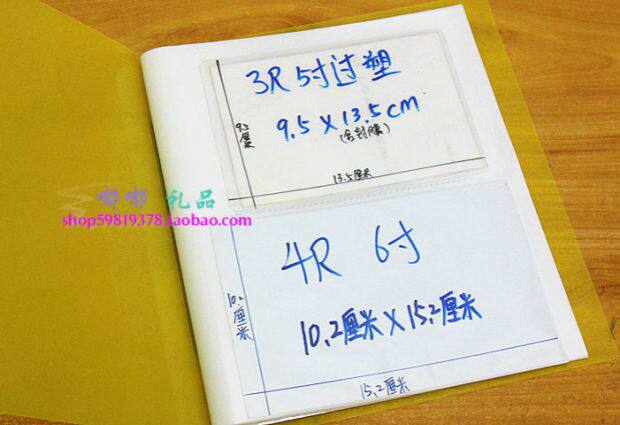 3R 5寸过塑
9.5 X 13.5cm
(含封膜)
9.5厘米
13.5厘米
嘟嘟 礼品
shop59819378.taobao.com
4R 6寸
10.2厘米X15.2厘米
10.2厘米
15.2厘米